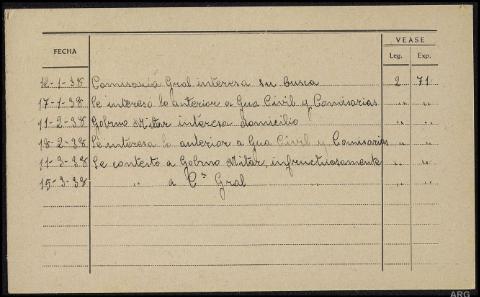 VEASE
FECHA Leg. Exp.
12-1-38 Comisaria Gral interesa su busca 2 71
17-1-38 Se interesa lo anterior a Gua Civil y Comisarias " "
11-2-38 Gobrno Militar interesa domicilio " "
18-2-38 Se interesa lo anterior a Gua Civil y Comisarias " "
11-3-38 Se contesto a Gobrno Militar, infructuosamente " "
15-3-38 " a Cª Gral " "
ARG